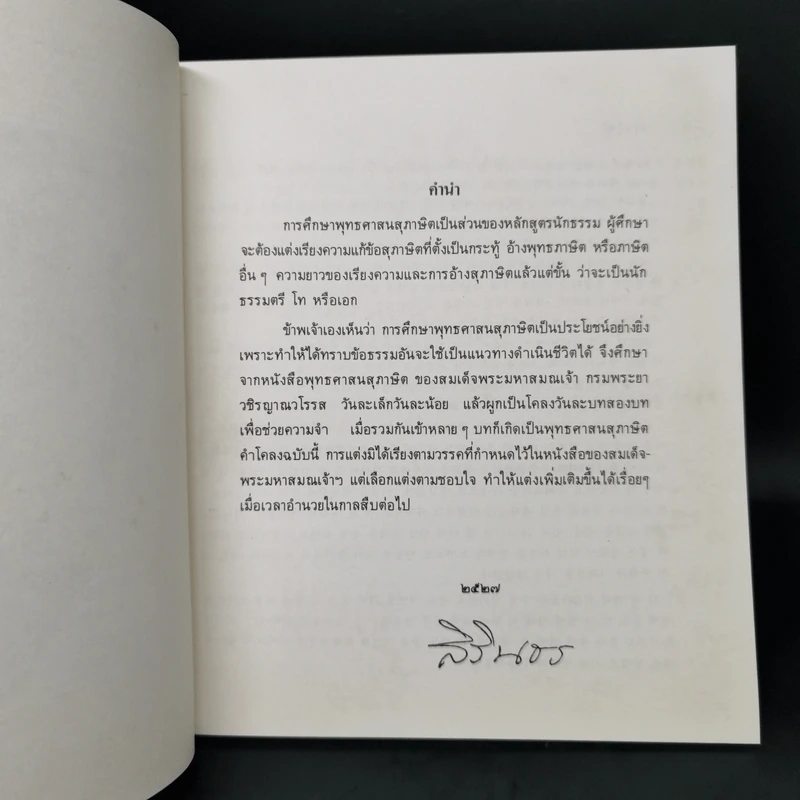 คำนำ
การศึกษาพุทธศาสนสุภาษิตเป็นส่วนของหลักสูตรนักธรรม ผู้ศึกษา
จะต้องแต่งเรียงความแก้ข้อสุภาษิตที่ตั้งเป็นกระทู้ อ้างพุทธภาษิต หรือภาษิต
อื่น ๆ ความยาวของเรียงความและการอ้างสุภาษิตแล้วแต่ขั้น ว่าจะเป็นนัก
ธรรมตรี โท หรือเอก
ข้าพเจ้าเองเห็นว่า การศึกษาพุทธศาสนสุภาษิตเป็นประโยชน์อย่างยิ่ง
เพราะทำให้ได้ทราบข้อธรรมอันจะใช้เป็นแนวทางดำเนินชีวิตได้ จึงศึกษา
จากหนังสือพุทธศาสนสุภาษิต ของสมเด็จพระมหาสมณเจ้า กรมพระยา
วชิรญาณวโรรส วันละเล็กวันละน้อย แล้วผูกเป็นโคลงวันละบทสองบท
เพื่อช่วยความจำ เมื่อรวมกันเข้าหลาย ๆ บทก็เกิดเป็นพุทธศาสนสุภาษิต
คำโคลงฉบับนี้ การแต่งมิได้เรียงตามวรรคที่กำหนดไว้ในหนังสือของสมเด็จ-
พระมหาสมณเจ้าฯ แต่เลือกแต่งตามชอบใจ ทำให้แต่งเพิ่มเติมขึ้นได้เรื่อยๆ
เมื่อเวลาอำนวยในกาลสืบต่อไป
๒๕๒๗
สิรินธร